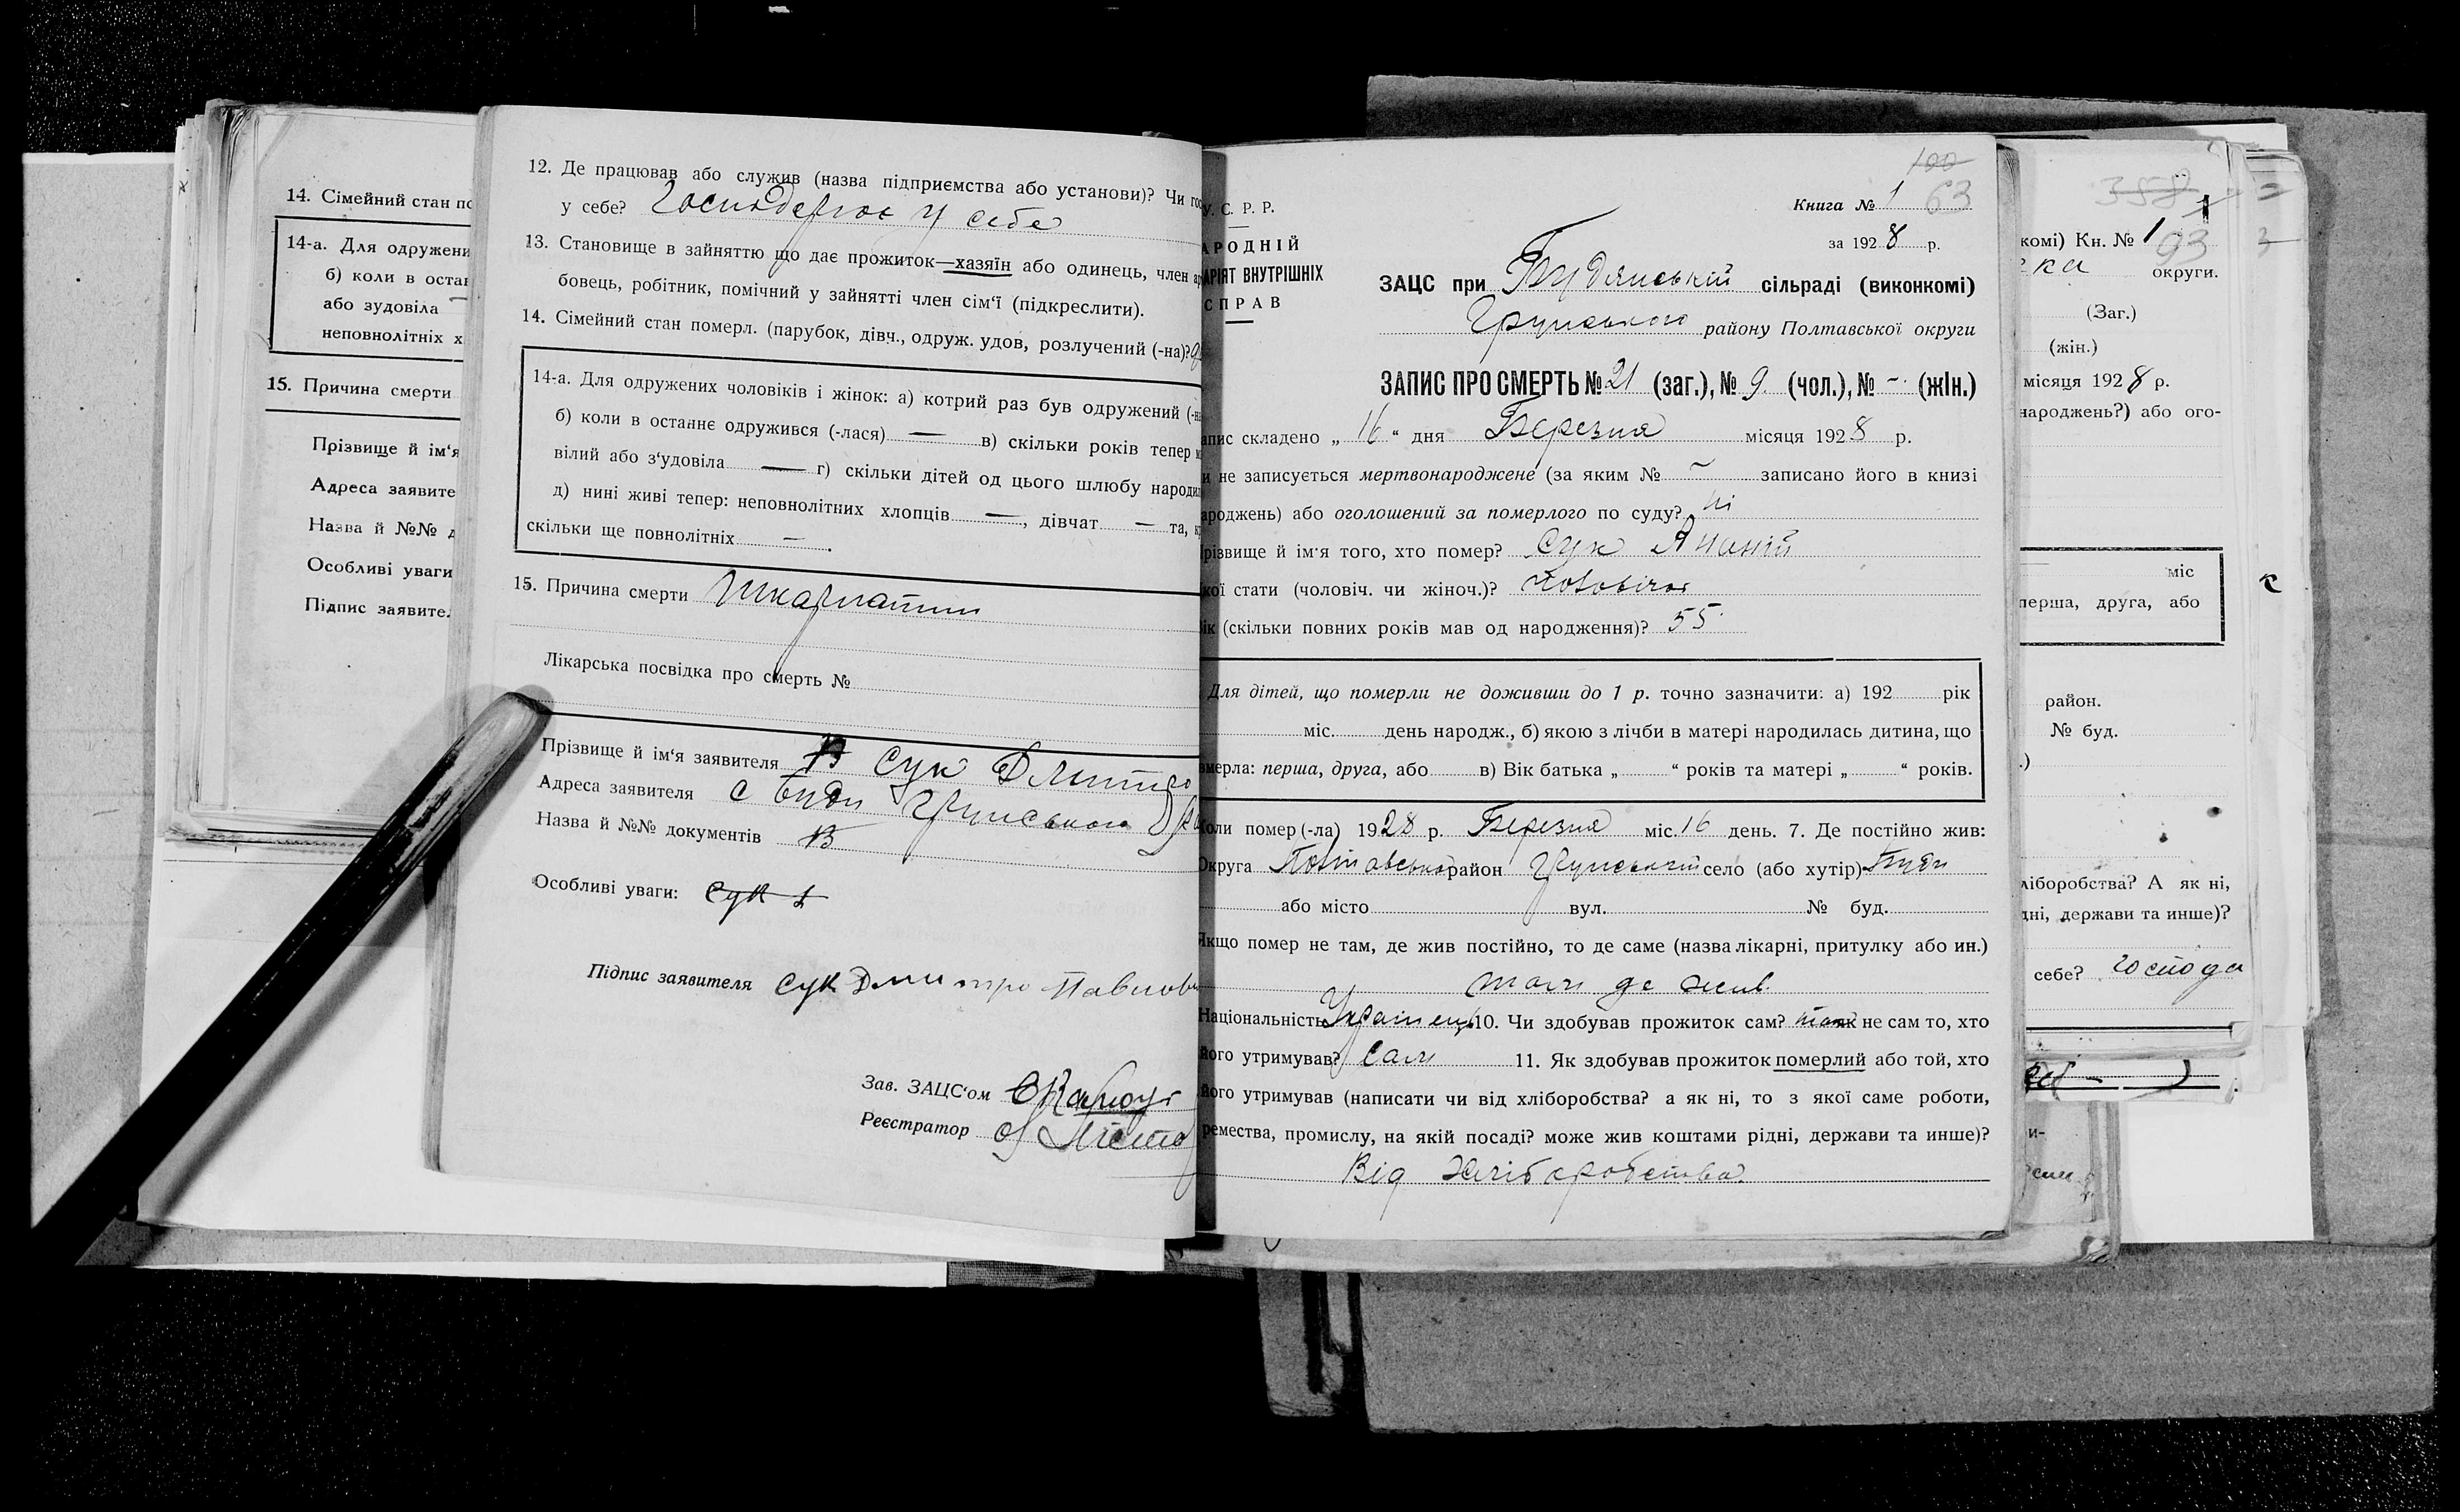 14. Сімейний стан по
14-а. Для одружени
б) коли в остан
або зудовіла —
неповнолітніх х
15. Причина смерти
Прізвище й ім‘я
Адреса заявите
Назва й №№ д
Особливі уваги
Підпис заявите
12. Де працював або служив (назва підприємства або установи)? Чи гос
у себе? Господарює у себе
13. Становище в зайняттю що дає прожиток—хазяїн або одинець, член ар
бовець, робітник, помічний у зайнятті член сім‘ї (підкреслити).
14. Сімейний стан померл. (парубок, дівч., одруж. удов, розлучений (-на)?
14-а. Для одружених чоловіків і жінок: а) котрий раз був одружений (-на
б) коли в останнє одружився (-лася) — в) скільки років тепер
вілий або з‘удовіла — г) скільки дітей од цього шлюбу народи
д) нині живі тепер: неповнолітних хлопців —, дівчат — та,
скільки ще повнолітніх —.
15. Причина смерти
Лікарська посвідка про смерть №
Прізвище й ім‘я заявителя Сук Дмитро
Адреса заявителя с Буди Грунського
Назва й №№ документів
Особливі уваги: Сук
Підпис заявителя Сук Дмитро Павлови
Зав. ЗАЦС‘ом
Реєстратор
У. С. Р. Р.
АРОДНІЙ
АРІЯТ ВНУТРІШНІХ
СПРАВ
100
Книга № 1 63
за 1928 р.
ЗАЦС при Будянській сільраді (виконкомі)
Грунського району Полтавської округи
ЗАПИС ПРО СМЕРТЬ № 21 (заг.), № 9 (чол.), № - (жін.)
апис складено „ 16 “ дня Березня місяця 1928 р.
и не записується мертвонароджене (за яким № – записано його в книзі
ароджень) або оголошений за померлого по суду? ні
різвище й ім‘я того, хто помер? Сук Ананій
кої стати (чоловіч. чи жіноч.)? чоловічої
ік (скільки повних років мав од народження)? 55
Для дітей, що померли не доживши до 1 р. точно зазначити: а) 192 рік
міс. день народж., б) якою з лічби в матері народилась дитина, що
вмерла: перша, друга, або в) Вік батька „ “ років та матері „ “ років.
Коли помер (-ла) 1928 р. Березня міс. 16 день. 7. Де постійно жив:
Округа Полтавська район Грунський село (або хутір) Буди
або місто вул. № буд.
Якщо помер не там, де жив постійно, то де саме (назва лікарні, притулку або ин.)
там де жив
Національність Українець 10. Чи здобував прожиток сам? так не сам то, хто
його утримував? Сам 11. Як здобував прожиток померлий або той, хто
його утримував (написати чи від хліборобства? а як ні, то з якої саме роботи,
ремества, промислу, на якій посаді? може жив коштами рідні, держави та инше)?
Від Хліборобства
358
комі) Кн. № 1 93
ка округи.
(Заг.)
(жін.)
місяця 1928 р.
народжень?) або ого-
міс
перша, друга, або
район.
№ буд.
.)
ліборобства? А як ні,
дні, держави та инше)?
себе? Господа
и-